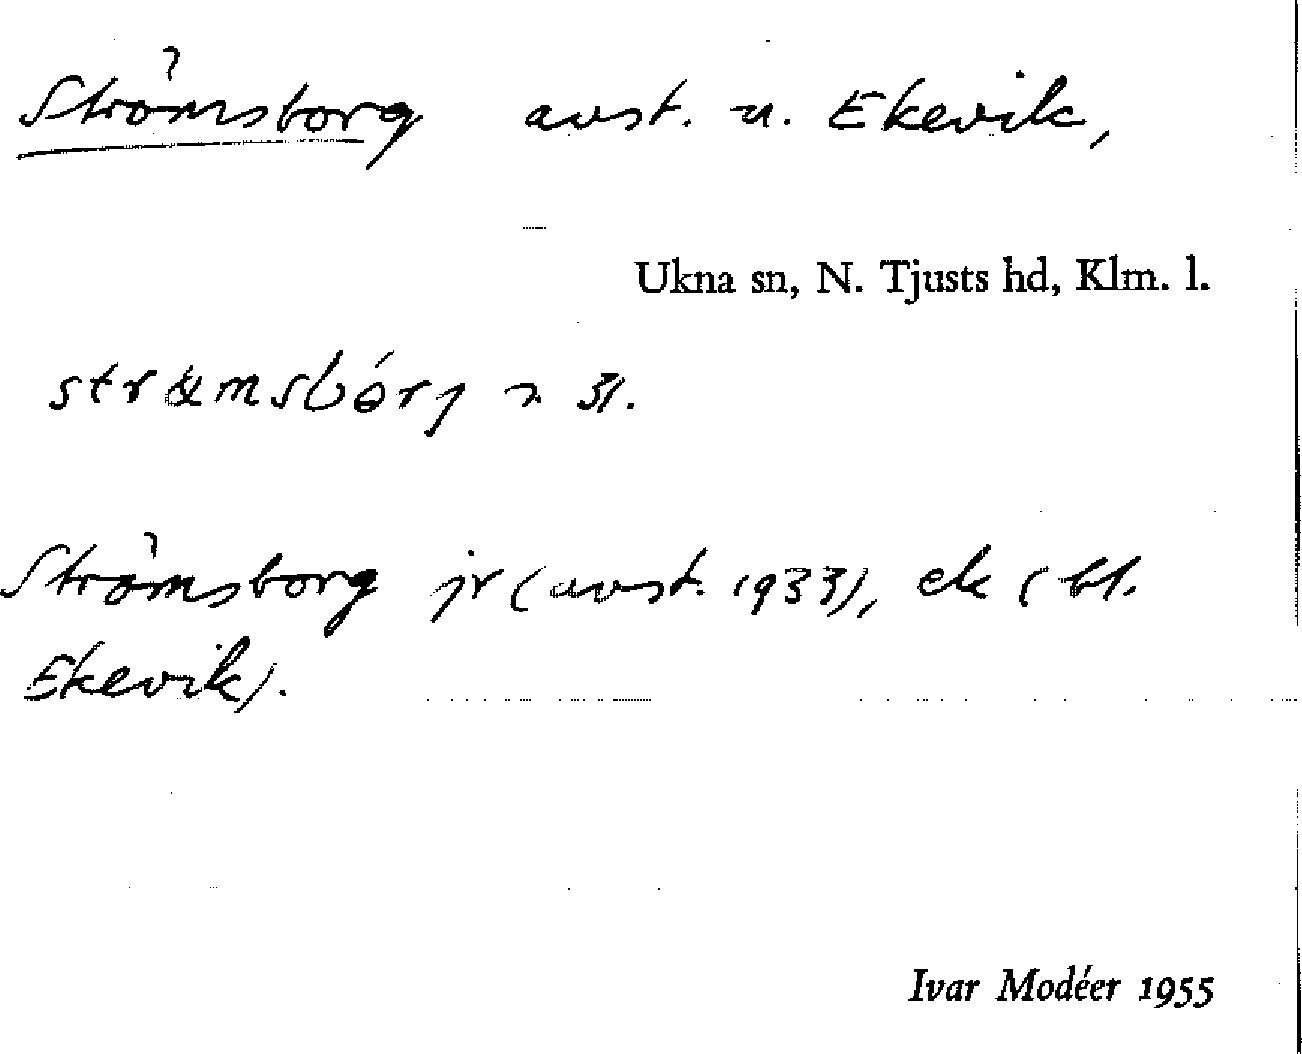 Strömsborg avst. u. Ekevik,
Ukna sn, N. Tjusts hd, Klm. l.
Strömsborg jr (avst. 1933), ek (bl.
Ekevik).
Ivar Modéer 1955